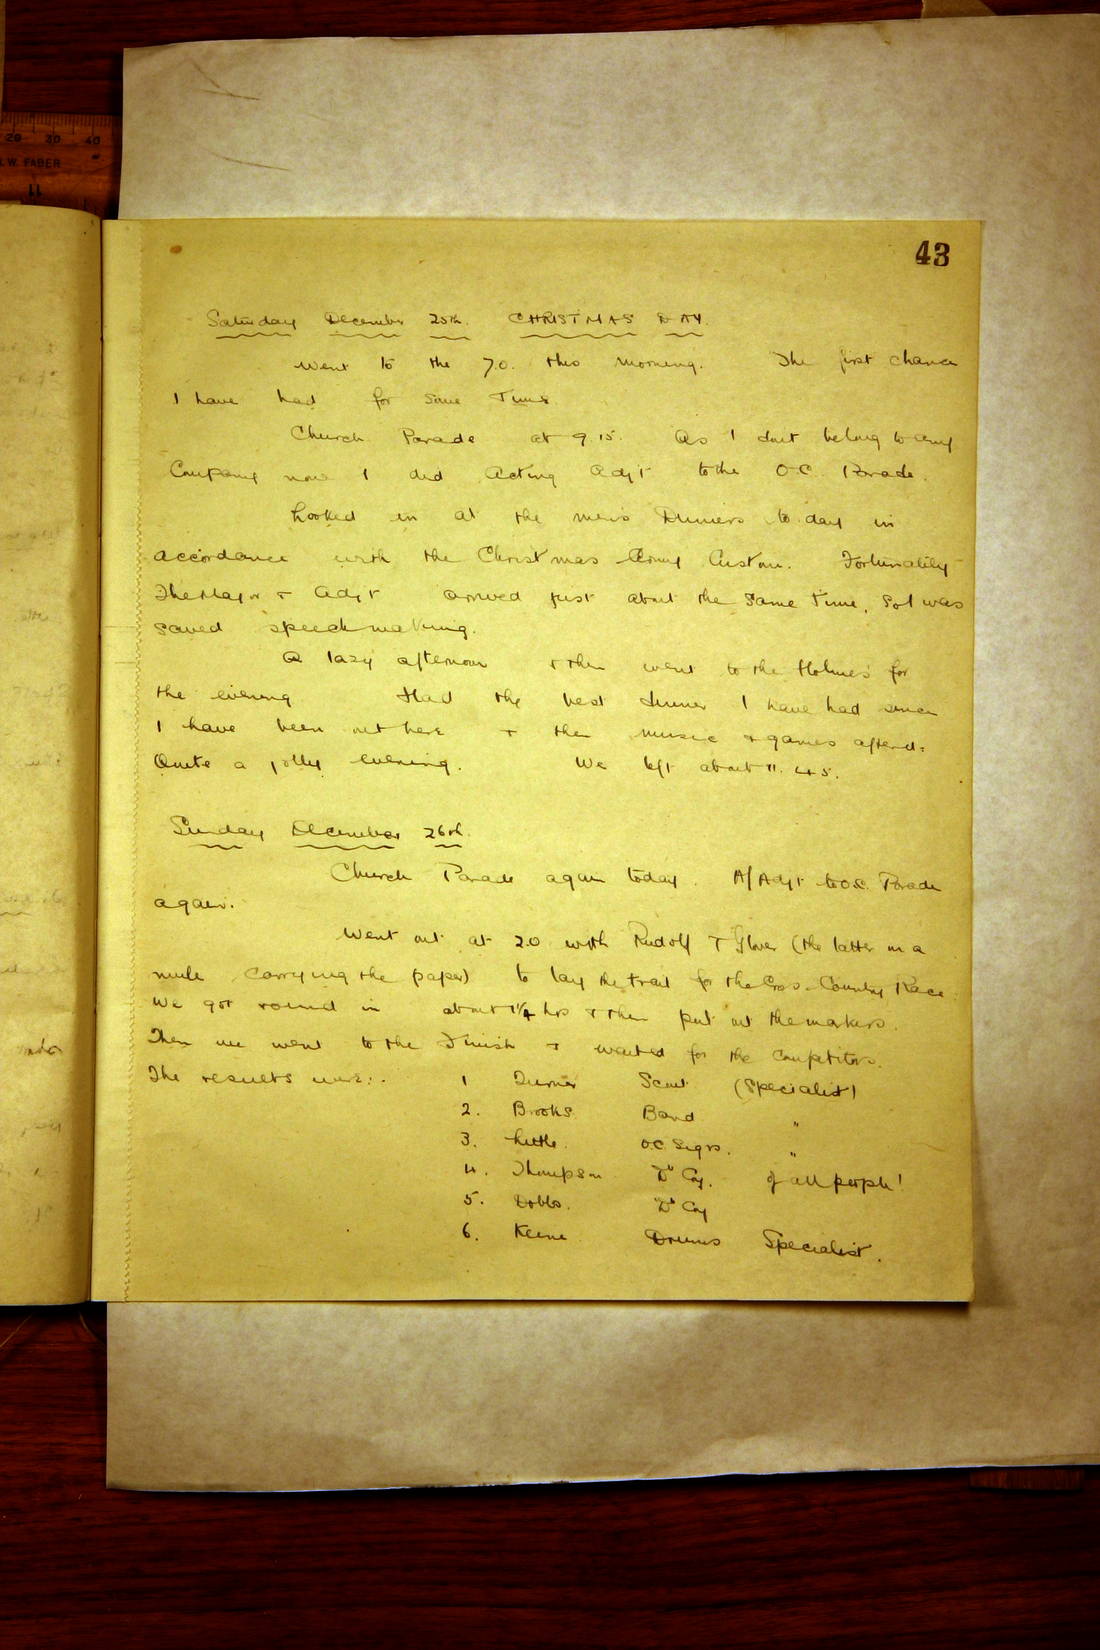 20 30 40
W. FABER
11
43
Saturday December 25th. CHRISTMAS DAY.
Went to the 7.0. this morning. The first chance
I have had for some time.
Church Parade at 9.15. As I dont belong to any
Company now I did Acting Adjt to the O.C. Parade.
Looked in at the men's Dinners to-day in
accordance with the Christmas Army Custom. Fortunately
The Major & Adjt arrived just about the same time, so I was
saved speechmaking.
A lazy afternoon & then went to the Holmes' for
the evening Had the best dinner I have had since
I have been out here & then music & games afterwds.
Quite a jolly evening. We left about 11.45.
Sunday December 26th.
Church Parade again today. A/Adjt to O.C. Parade
again.
Went out at 2.0 with Rudolf & Glover (the latter on a
mule carrying the paper) to lay the trail for the Cross-Country Race.
We got round in about 1¼ hrs & then put out the markers.
Then we went to the Finish & waited for the competitors.
The results were:-
1 Turner Scout (Specialist)
2. Brooks Band "
3. Little. O.C. Sigrs. "
4. Thompson "D" Coy. of all people!
5. Dobbs. "D" Coy
6. Keene Drums Specialist.